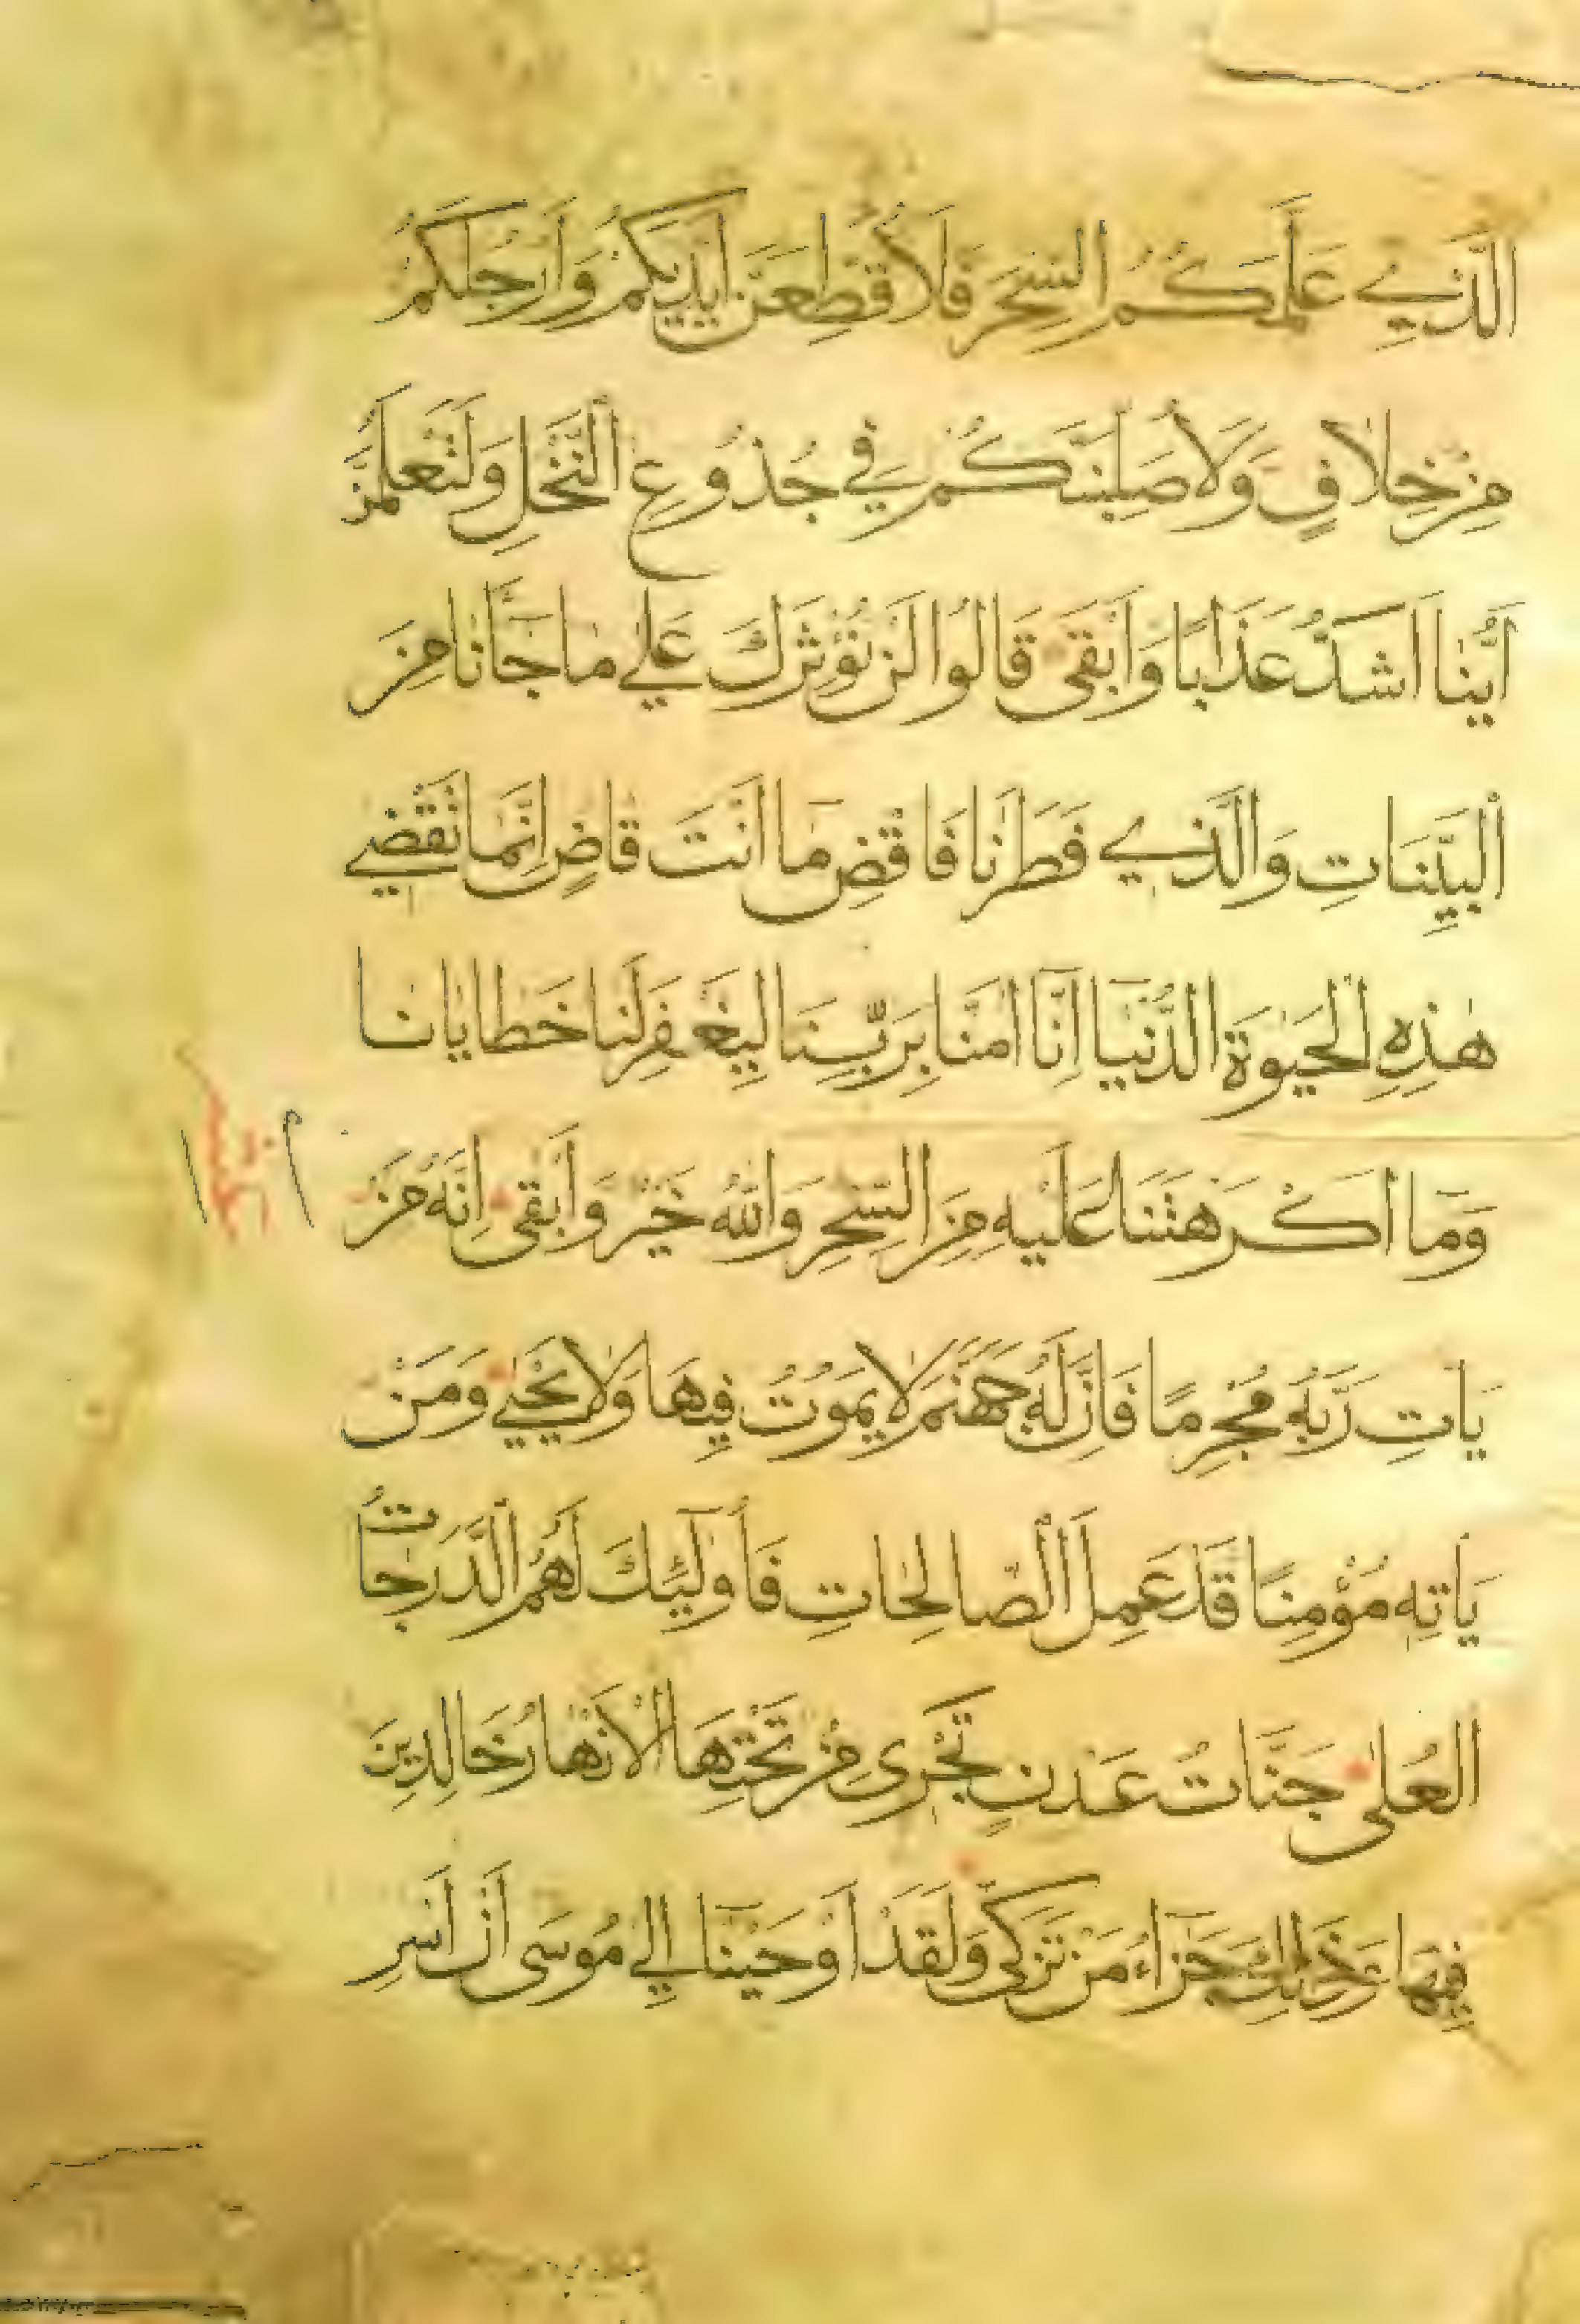 الَّذِي عَلَّمَكُمُ السِّحْرَ فَلَأُقَطِّعَنَّ أَيْدِيَكُمْ وَأَرْجُلَكُمْ
مِنْ خِلَافٍ وَلَأُصَلِّبَنَّكُمْ فِي جُذُوعِ النَّخْلِ وَلَتَعْلَمُنَّ
أَيُّنَا أَشَدُّ عَذَابًا وَأَبْقَى قَالُوا لَنْ نُؤْثِرَكَ عَلَي مَا جَآنَا مِنَ
الْبَيِّنَاتِ وَالَّذِي فَطَرَنَا فَاقْضِ مَا أَنْتَ قَاضٍ إِنَّمَا تَقْضِي
هٰذِهِ الْحَيٰوةَ الدُّنْيَا إِنَّا آمَنَّا بِرَبِّنَا لِيَغْفِرَ لَنَا خَطَايَانَا
وَمَا أَكْرَهْتَنَا عَلَيْهِ مِنَ السِّحْرِ وَاللّٰهُ خَيْرٌ وَأَبْقَى إِنَّهُ مَنْ
يَأْتِ رَبَّهُ مُجْرِمًا فَإِنَّ لَهُ جَهَنَّمَ لَا يَمُوتُ فِيهَا وَلَا يَحْيَي وَمَنْ
يَأْتِهِ مُؤْمِنًا قَدْ عَمِلَ الصَّالِحَاتِ فَأُولٰٓئِكَ لَهُمُ الدَّرَجَاتُ
الْعُلَى جَنَّاتُ عَدْنٍ تَجْرِى مِنْ تَحْتِهَا الْأَنْهَارُ خَالِدِينَ
فِيهَا وَذٰلِكَ جَزَاءُ مَنْ تَزَكَّى وَلَقَدْ أَوْحَيْنَا إِلَي مُوسَى أَنْ أَسْرِ